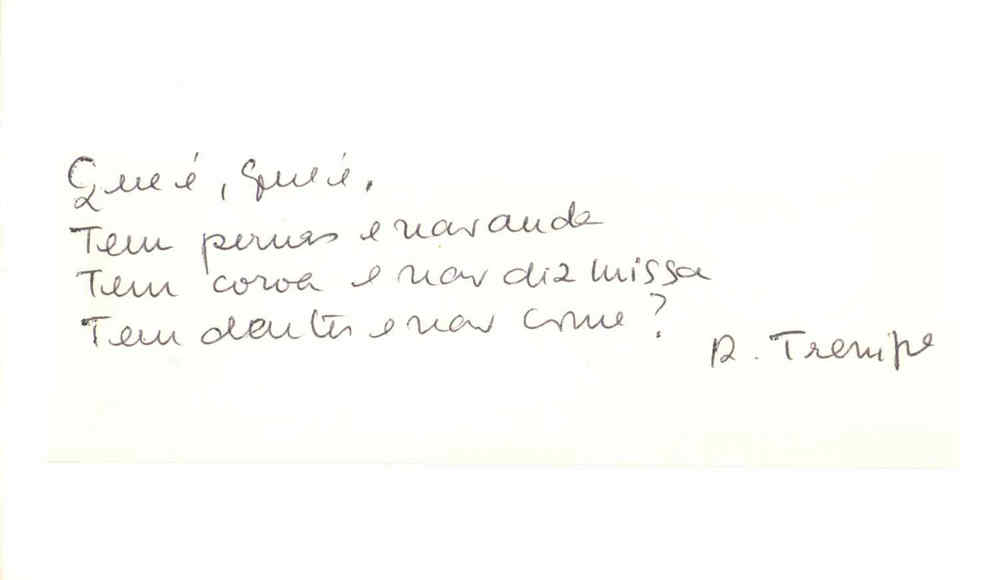 Que é, que é,
Tem pernas e não anda
Tem coroa e não diz missa
Tem dentes e não come?
R. Trempe